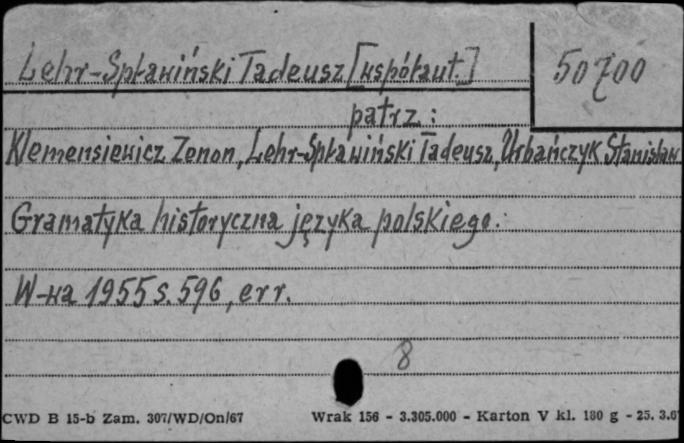 Lehr-Spławiński Tadeusz [współaut.]
50700
patrz:
Klemensiewicz Zenon, Lehr-Spławiński Tadeusz, Urbańczyk Stanisław
Gramatyka historyczna języka polskiego.
W-wa 1955 s. 596, err.
8
CWD B 15-b Zam. 307/WD/On/67 Wrak 156 - 3.305.000 - Karton V kl. 180 g - 25. 3.6